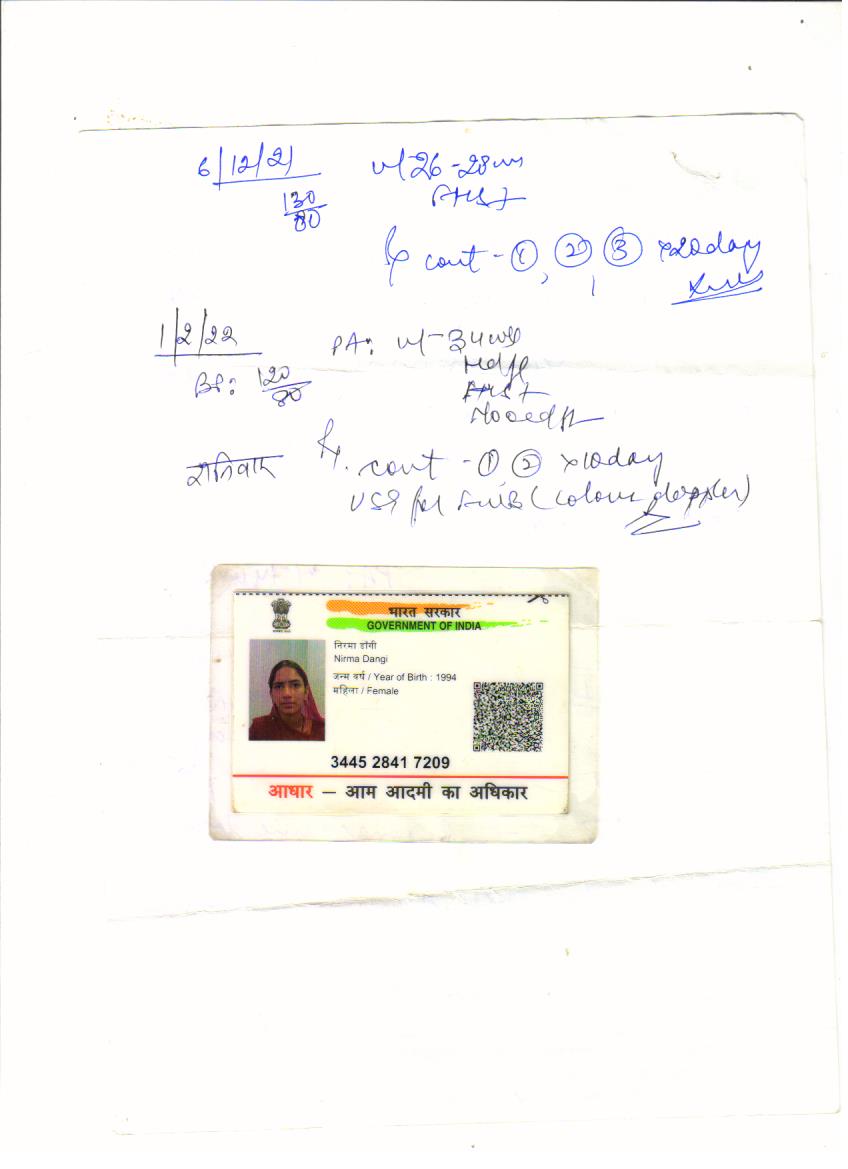 6/12/21
ut 26-28 wks
130/80
FHS +
Rx cont - ①, ②, ③ x 20 day
1/2/22
PA: ut - 34 wks
BP: 120/80
FHS +
No oedema
शनिवार
Rx. cont - ① ② x 10 day
USG for FWB (colour doppler)
भारत सरकार
GOVERNMENT OF INDIA
निरमा डाँगी
Nirma Dangi
जन्म वर्ष / Year of Birth : 1994
महिला / Female
3445 2841 7209
आधार – आम आदमी का अधिकार